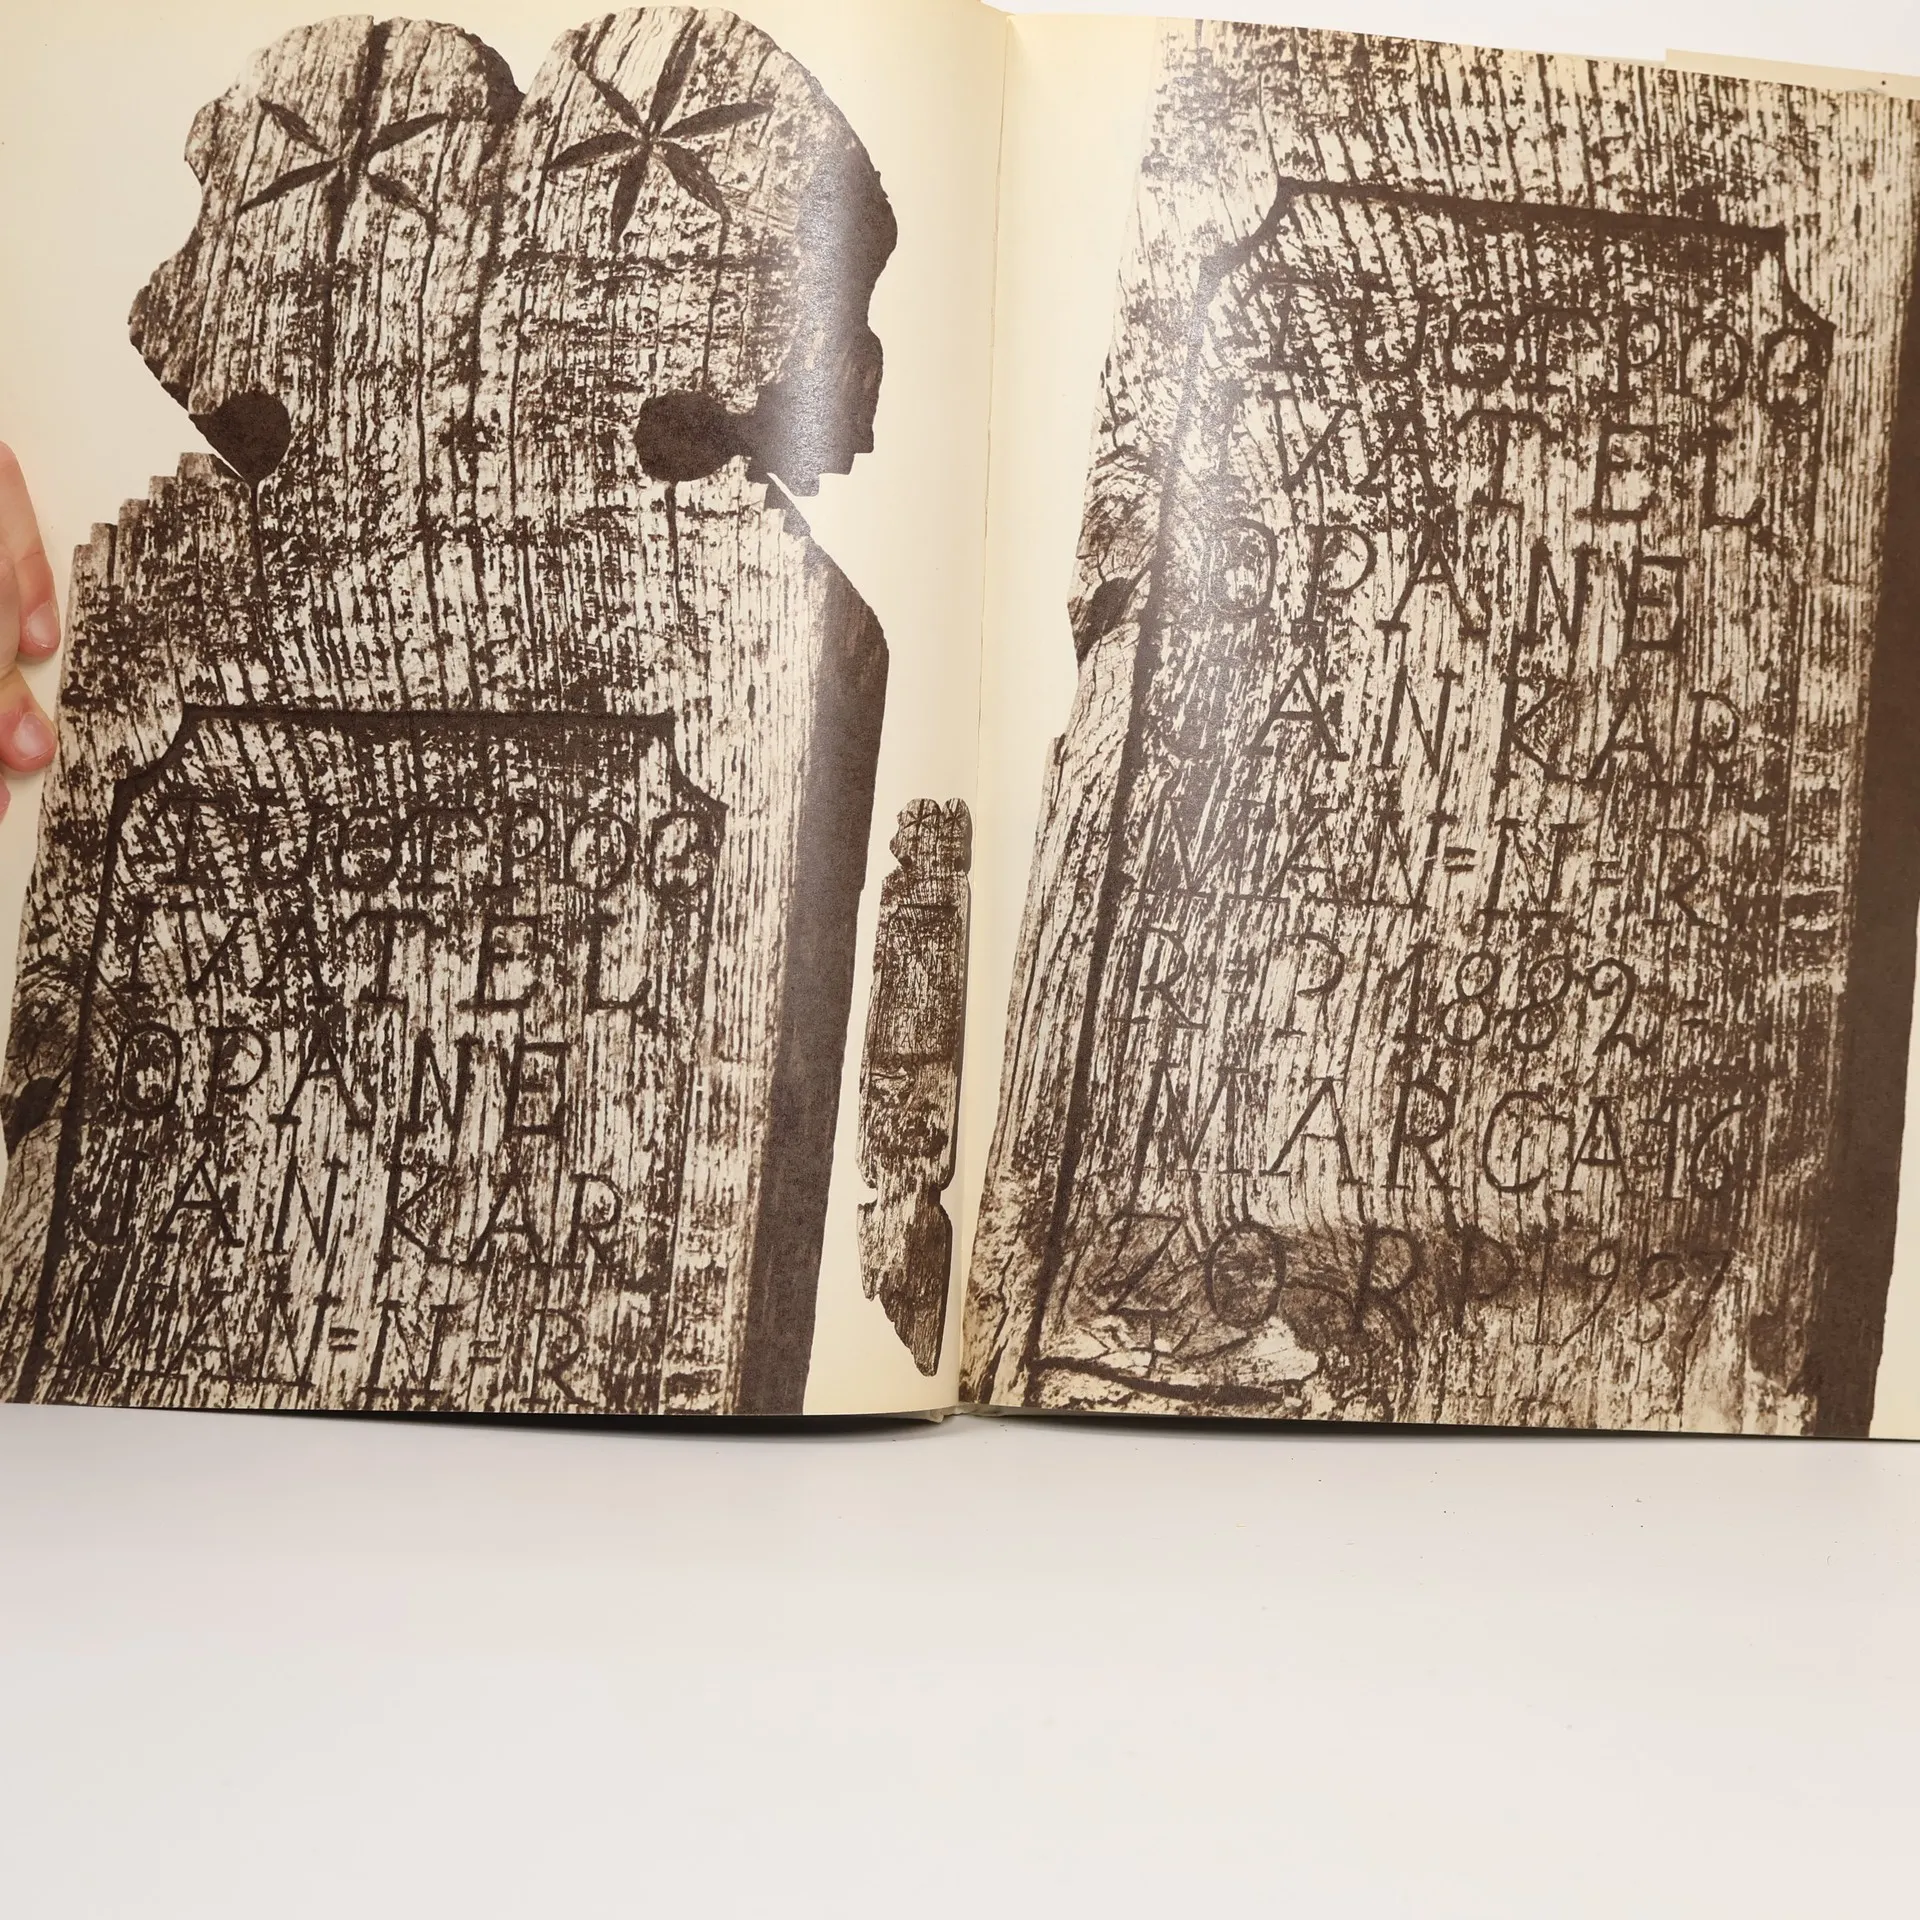 TUOTPOC
IVATEL
OPANE
JANKAR
MAN=N=R
TUOTPOC
IVATEL
OPANE
JANKAR
MAN=N=R
R=P1882=
MARCA16
ZO RP1937